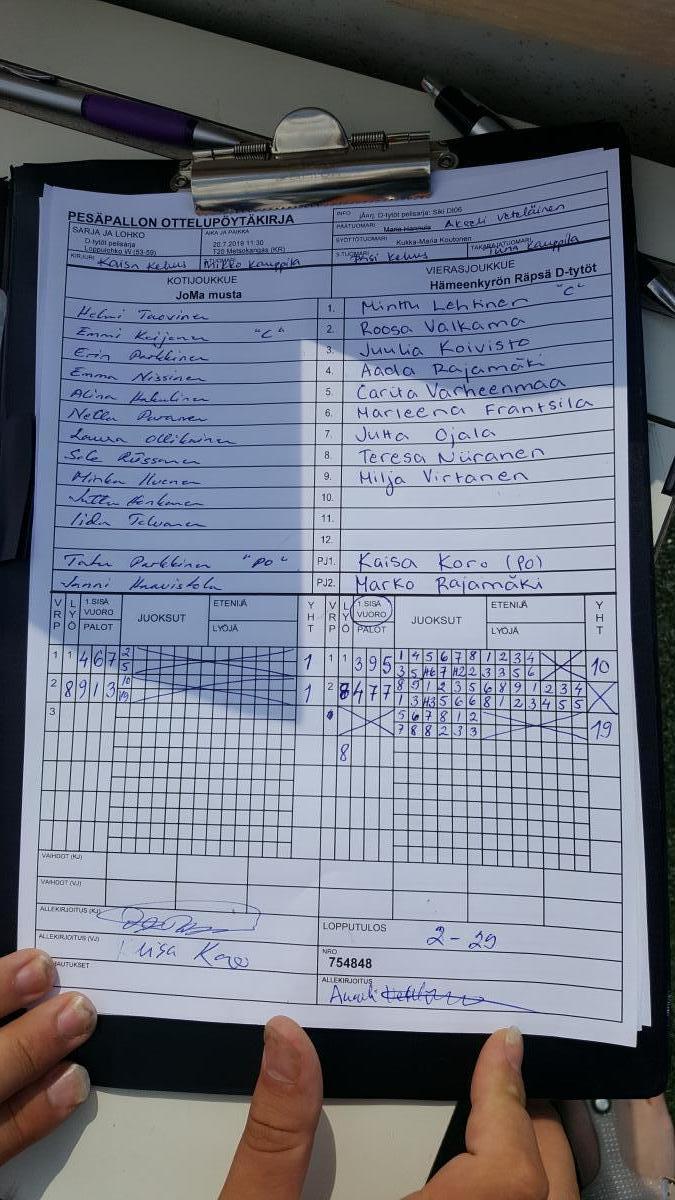 PESÄPALLON OTTELUPÖYTÄKIRJA
INFO jÄorj. D-tytöt pelisarja: Siki Dt06
PÄÄTUOMARI Akseli Veteläinen
SARJA JA LOHKO AIKA JA PAIKKA
D-tytöt pelisarja 20.7.2019 11:30
Loppulohko W (53-59) 720 Metsokangas (KR)
SYÖTTÖTUOMARI Kukka-Maria Koutonen TAKARAJATUOMARI Kauppila
KIRJURI Kaisa Kehus Mikko Kauppila 3-TUOMARI Pasi Kehus
KOTIJOUKKUE VIERASJOUKKUE
JoMa musta Hämeenkyrön Räpsä D-tytöt
Helmi 1. Minttu Lehtinen "C"
Emmi "C" 2. Roosa Valkama
Erin Parkkinen 3. Juulia Koivisto
Emma Nissinen 4. Aada Rajamäki
Alina 5. Carita Varheenmaa
Nella 6. Marleena Frantsila
Laura Ollikainen 7. Jutta Ojala
8. Teresa Niiranen
Minka 9. Milja Virtanen
10.
Iida 11.
12.
Parkkinen "PO" PJ1. Kaisa Koro (PO)
Haavistola PJ2. Marko Rajamäki
VRP LYÖ 1.SISÄ VUORO PALOT JUOKSUT ETENIJÄ LYÖJÄ YHT VRP LYÖ 1.SISÄ VUORO PALOT JUOKSUT ETENIJÄ LYÖJÄ YHT
1 1 4 6 7 2 1 1 1 3 9 5 1 4 5 6 7 8 1 2 3 4 10
5 3 5 H6 7 H2 2 3 3 5 6
2 8 9 1 3 10 1 2 8 4 7 7 8 9 1 2 3 5 6 8 9 1 2 3 4
19 1 3 H3 5 6 6 8 1 2 3 4 5 5
3 5 6 7 8 1 2 19
7 8 8 2 3 3
8
VAIHDOT (KJ)
VAIHDOT (VJ)
ALLEKIRJOITUS (KJ)
LOPPUTULOS 2-29
ALLEKIRJOITUS (VJ) Kaisa Koro
NRO
754848
ALLEKIRJOITUS